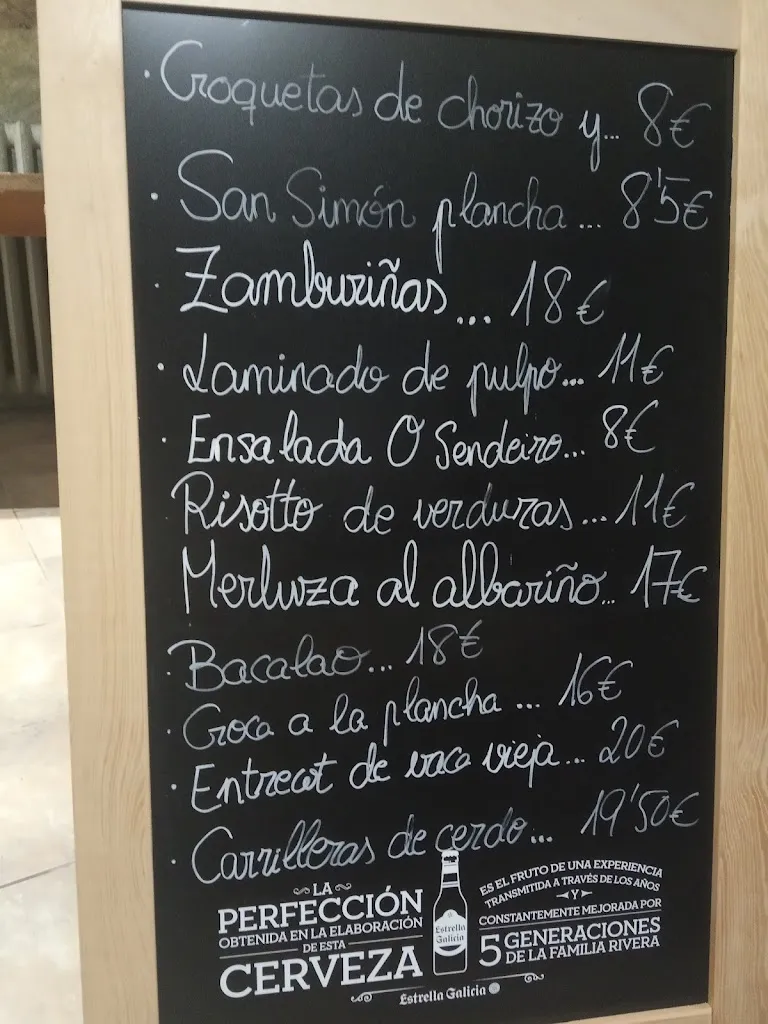 · Croquetas de chorizo y... 8€
· San Simón plancha... 8'5€
· Zamburiñas... 18€
· Laminado de pulpo... 11€
· Ensalada O Sendeiro... 8€
Risotto de verduras... 11€
Merluza al albariño... 17€
· Bacalao... 18€
· Croca a la plancha... 16€
· Entrecot de vaca vieja... 20€
· Carrilleras de cerdo... 19'50€
LA
PERFECCIÓN
OBTENIDA EN LA ELABORACIÓN
DE ESTA
CERVEZA
Estrella
Galicia
ES EL FRUTO DE UNA EXPERIENCIA
TRANSMITIDA A TRAVÉS DE LOS AÑOS
Y
CONSTANTEMENTE MEJORADA POR
5 GENERACIONES
DE LA FAMILIA RIVERA
Estrella Galicia